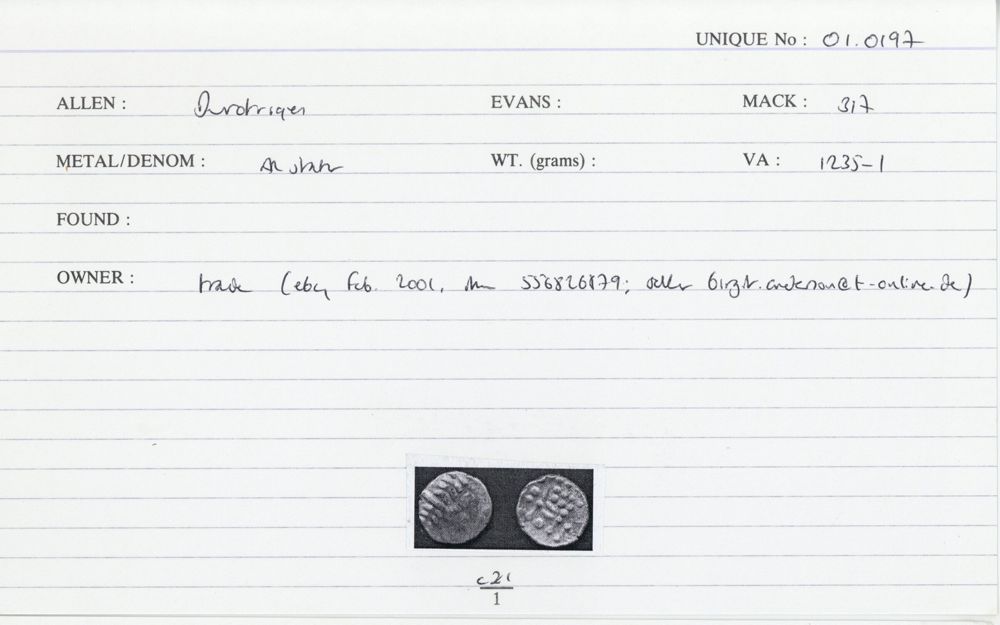 UNIQUE No : 01.0197
ALLEN : Durotriges EVANS : MACK : 317
METAL/DENOM : AR stater WT. (grams) : VA : 1235-1
FOUND :
OWNER : trade (ebay Feb. 2001, item 556826879; seller
c21
1